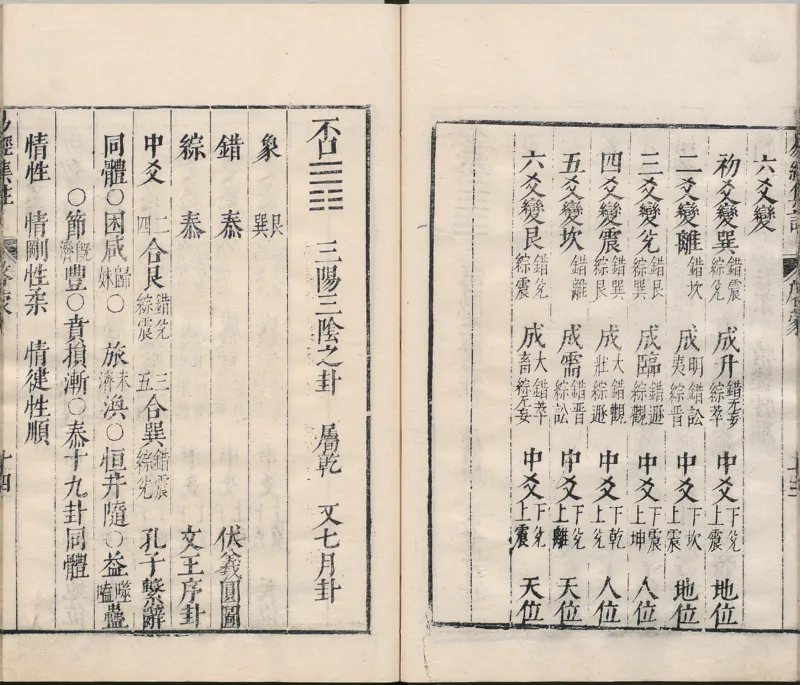 六爻變
初爻變巽 錯震綜兌 成升 錯无妄綜萃 中爻 下兌上震 地位
二爻變離 錯坎 成明夷 錯訟綜晉 中爻 下坎上震 地位
三爻變兌 錯艮綜巽 成臨 錯遯綜觀 中爻 下震上坤 人位
四爻變震 錯巽綜艮 成大壯 錯觀綜遯 中爻 下乾上兌 人位
五爻變坎 錯離 成需 錯晉綜訟 中爻 下兌上離 天位
六爻變艮 錯兌綜震 成大畜 錯萃綜无妄 中爻 下兌上震 天位
否䷋ 三陽三陰之卦 屬乾 又七月卦
象 艮巽
錯 泰 伏羲圓圖
綜 泰 文王序卦
中爻 二四合艮 錯兌綜震 三五合巽 錯震綜兌 孔子繫辭
同體○困咸歸妹○旅未濟渙○恒井隨○益噬嗑蠱
○節既濟豐○賁損漸○泰十九卦同體
情性 情剛性柔 情健性順
十四